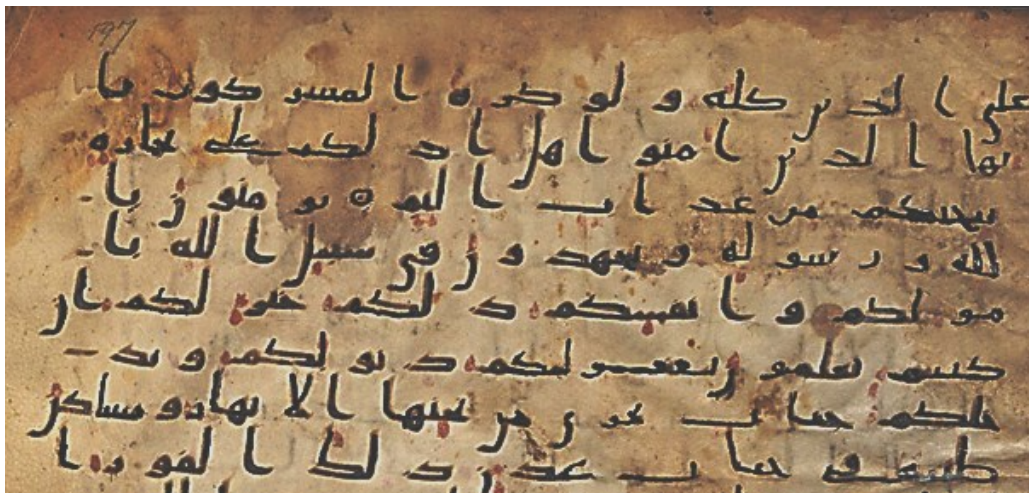 على الدين كله ولو كره المشركون يا
يها الذين امنوا هل ادلكم على تجارة
تنجيكم من عذاب اليم تومنون با
لله ورسوله وتجهدون في سبيل الله با
مولكم وانفسكم ذلكم خير لكم ان
كنتم تعلمون يغفر لكم ذنوبكم ويد
خلكم جنات تجري من تحتها الانهار ومساكن
طيبة في جنات عدن ذلك الفوز ا